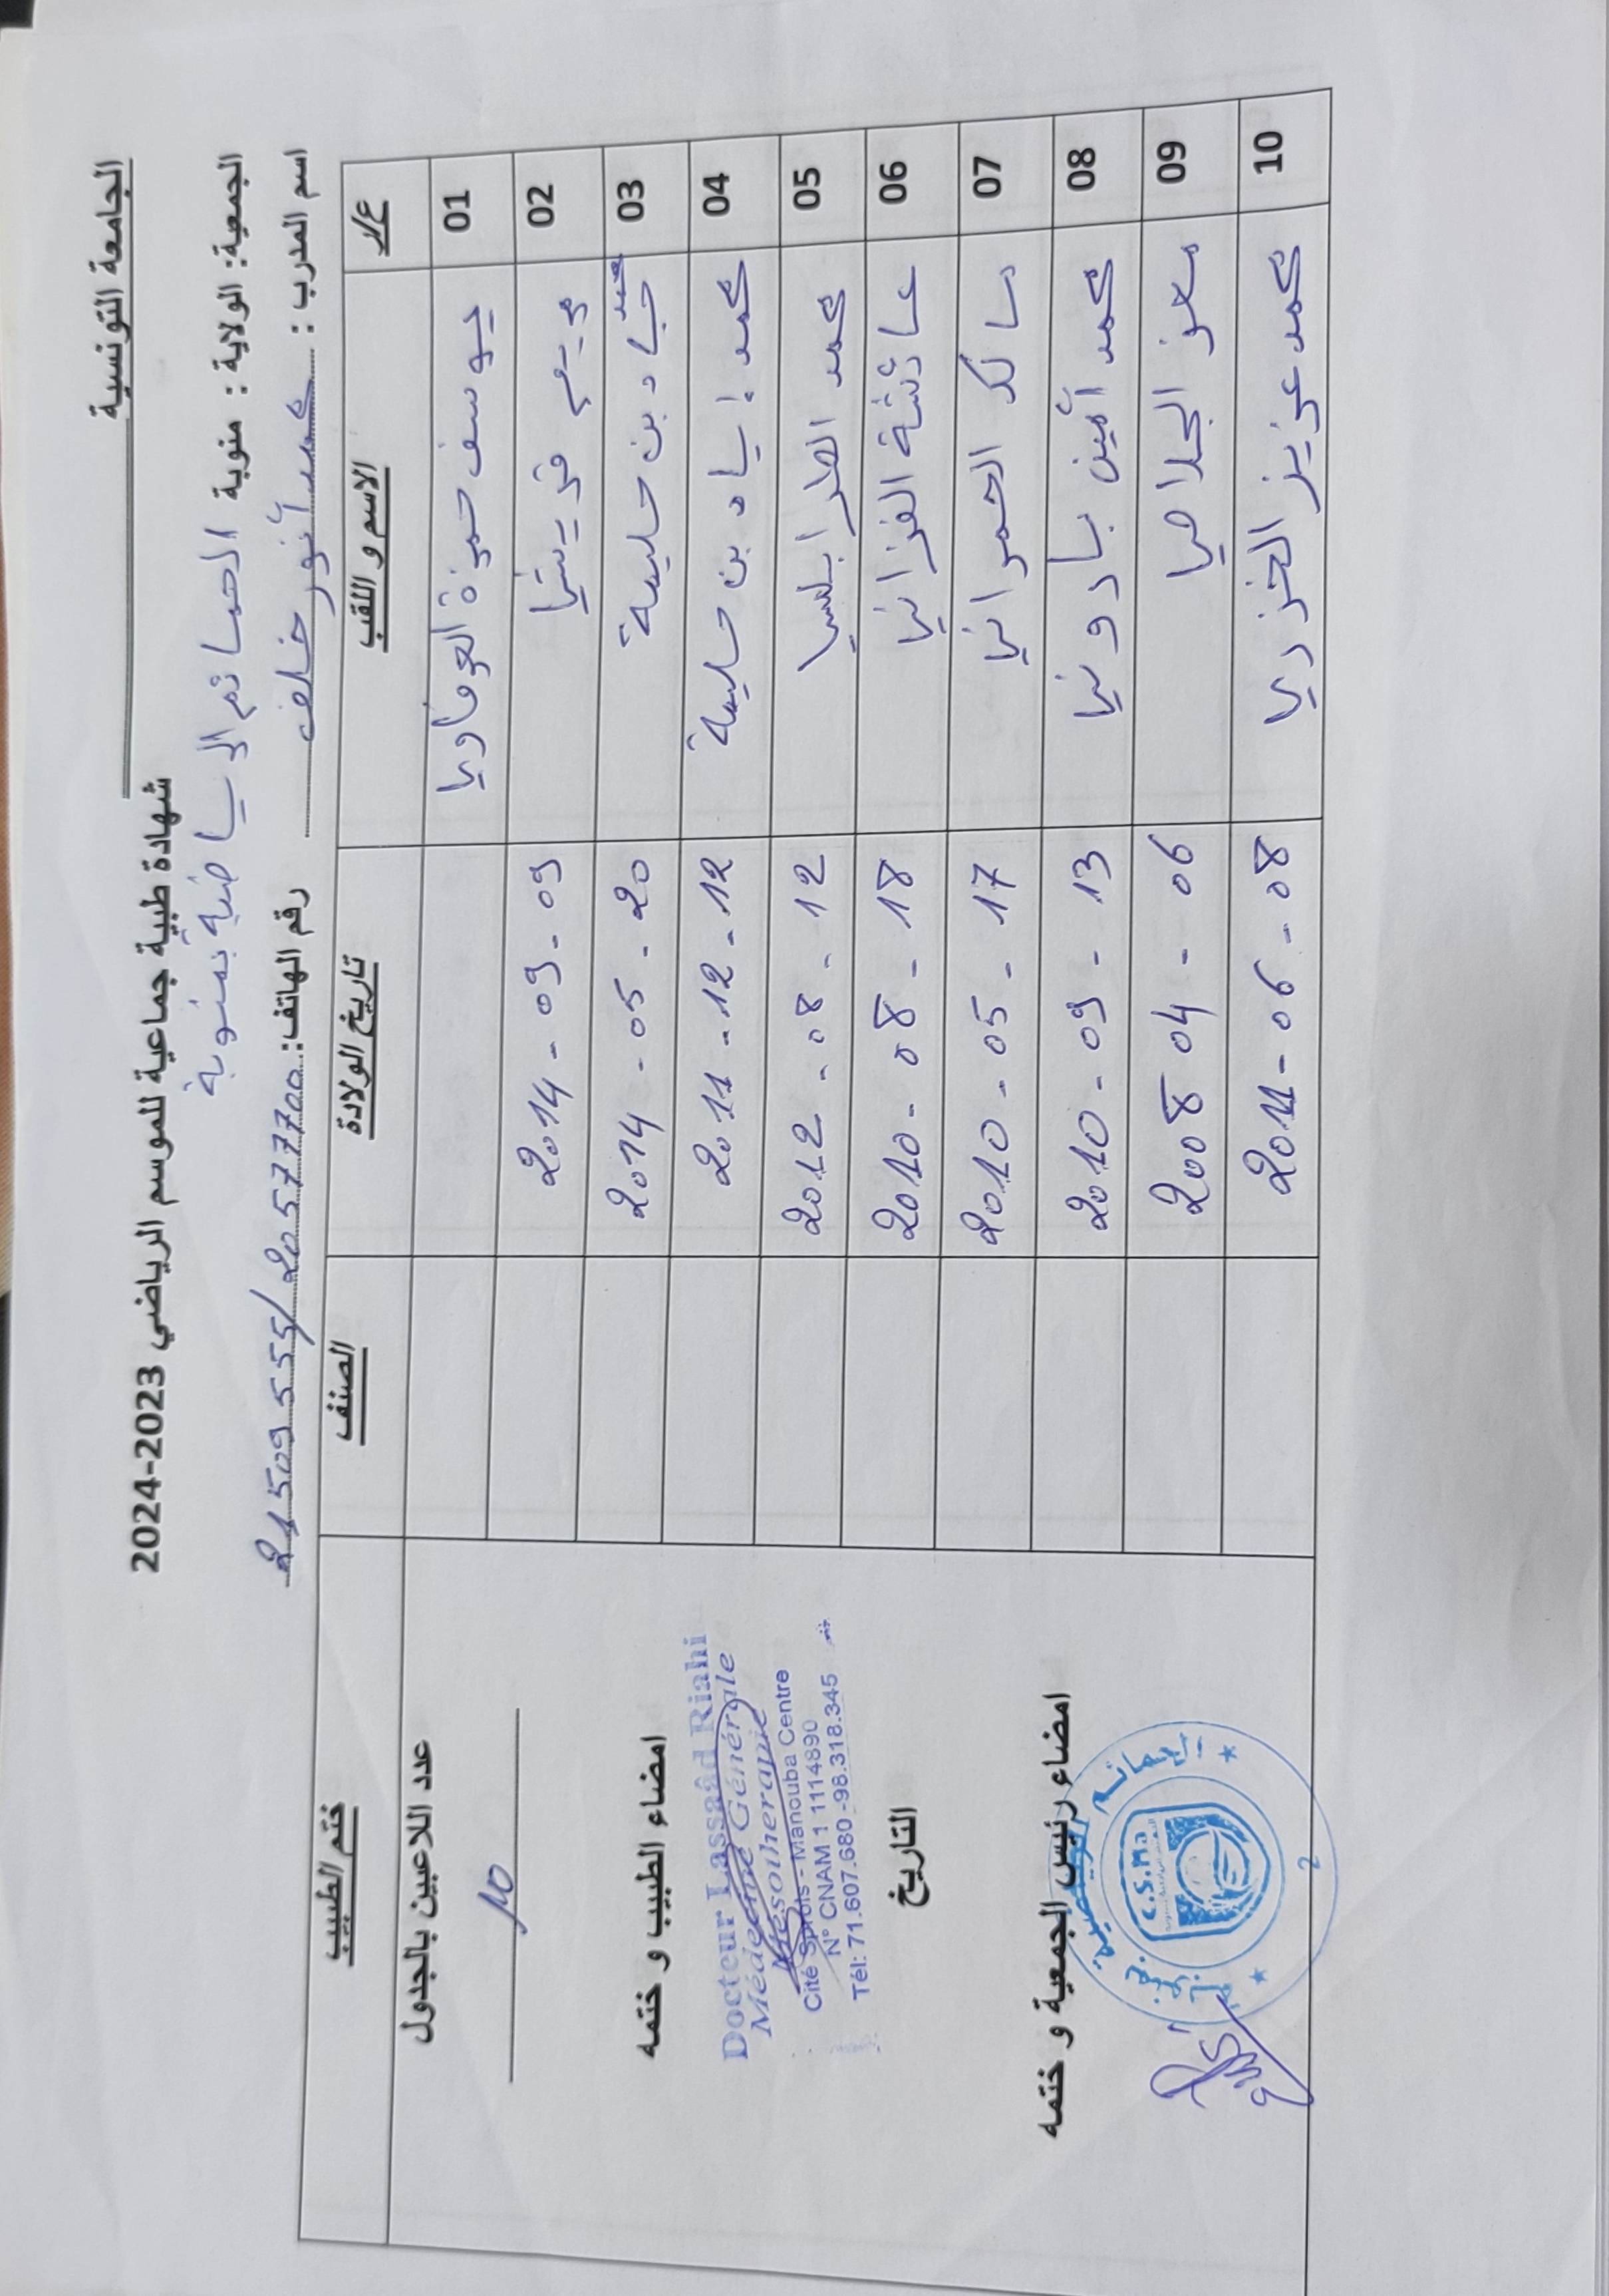 الجامعة التونسية
شهادة طبية جماعية للموسم الرياضي 2023-2024
الجمعية: الولاية : منوبة الحمائم الرياضية بمنوبة
اسم المدرب : محمد أنور خلف رقم الهاتف: 20577700 / 21509555
ع/ر الاسم و اللقب تاريخ الولادة الصنف ختم الطبيب
01 يوسف حمزة العرفاوي
02 مريم قريشي 2014 - 09 - 09
03 محمد جياد بن حليمة 2014 - 05 - 20
04 محمد إياد بن حليمة 2011 - 12 - 12
05 محمد الطرابلسي 2012 - 08 - 12
06 عائشة الفزاني 2010 - 08 - 18
07 مالك الحمراني 2010 - 05 - 17
08 محمد أمين بادوني 2010 - 09 - 13
09 معز الجلاصي 2008 04 - 06
10 محمد عزيز الخزري 2011 - 06 - 08
عدد اللاعبين بالجدول
10
امضاء الطبيب و ختمه
Docteur Lassaâd Riahi
Médecine Générale
Mésotherapie
Cité Sprols - Manouba Centre
N° CNAM 1 1114890
Tél: 71.607.680 -98.318.345
التاريخ
امضاء رئيس الجمعية و ختمه
C.S.Ma